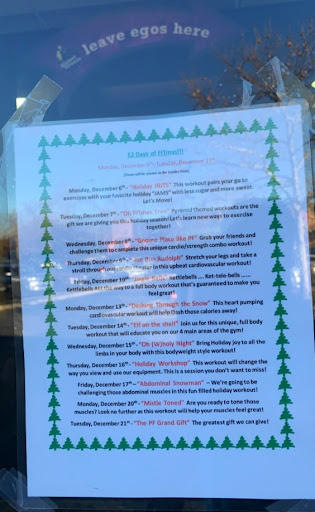 leave egos here
12 Days of FITmas!!!
Monday, December 6th - Tuesday, December 21st
Monday, December 6th - "Holiday HIITS" This workout pairs your go to
exercises with your favorite holiday "JAMS" with less sugar and more sweat.
Let's Move!
Tuesday, December 7th - "Oh Fitmas Tree" Pyramid themed workouts are the
gift we are giving you this holiday season! Let's learn new ways to exercise
together!
Wednesday, December 8th - "Groove Place like PF" Grab your friends and
challenge them to complete this unique cardio/strength combo workout!
Thursday, December 9th - "Run Run Rudolph" Stretch your legs and take a
stroll through theater in this upbeat cardiovascular workout!
Friday, December 10th - Kettlebells .... Ket-tele-bells .....
Kettlebells All the way to a full body workout that's guaranteed to make you
feel great!
Monday, December 13th - "Dashing Through the Snow" This heart pumping
cardiovascular workout will help Dash those calories away!
Tuesday, December 14th - "Elf on the shelf" Join us for this unique, full body
workout that will educate you on our 4 main areas of the gym!
Wednesday, December 15th - "Oh (W)holy Night" Bring Holiday joy to all the
limbs in your body with this bodyweight style workout!
Thursday, December 16th - "Holiday Workshop" This workout will change the
way you view and use our equipment. This is a session you don't want to miss!
Friday, December 17th - "Abdominal Snowman" - We're going to be
challenging those abdominal muscles in this fun filled holiday workout!
Monday, December 20th - "Mistle Toned" Are you ready to tone those
muscles? Look no further as this workout will help your muscles feel great!
Tuesday, December 21st - "The PF Grand Gift" The greatest gift we can give!